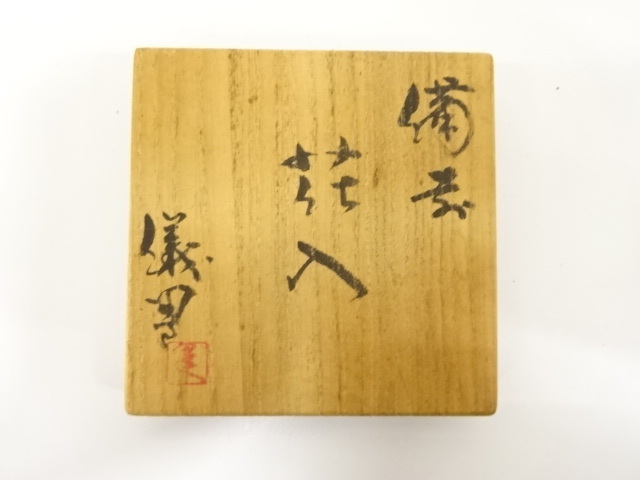 備前
花入
儀男